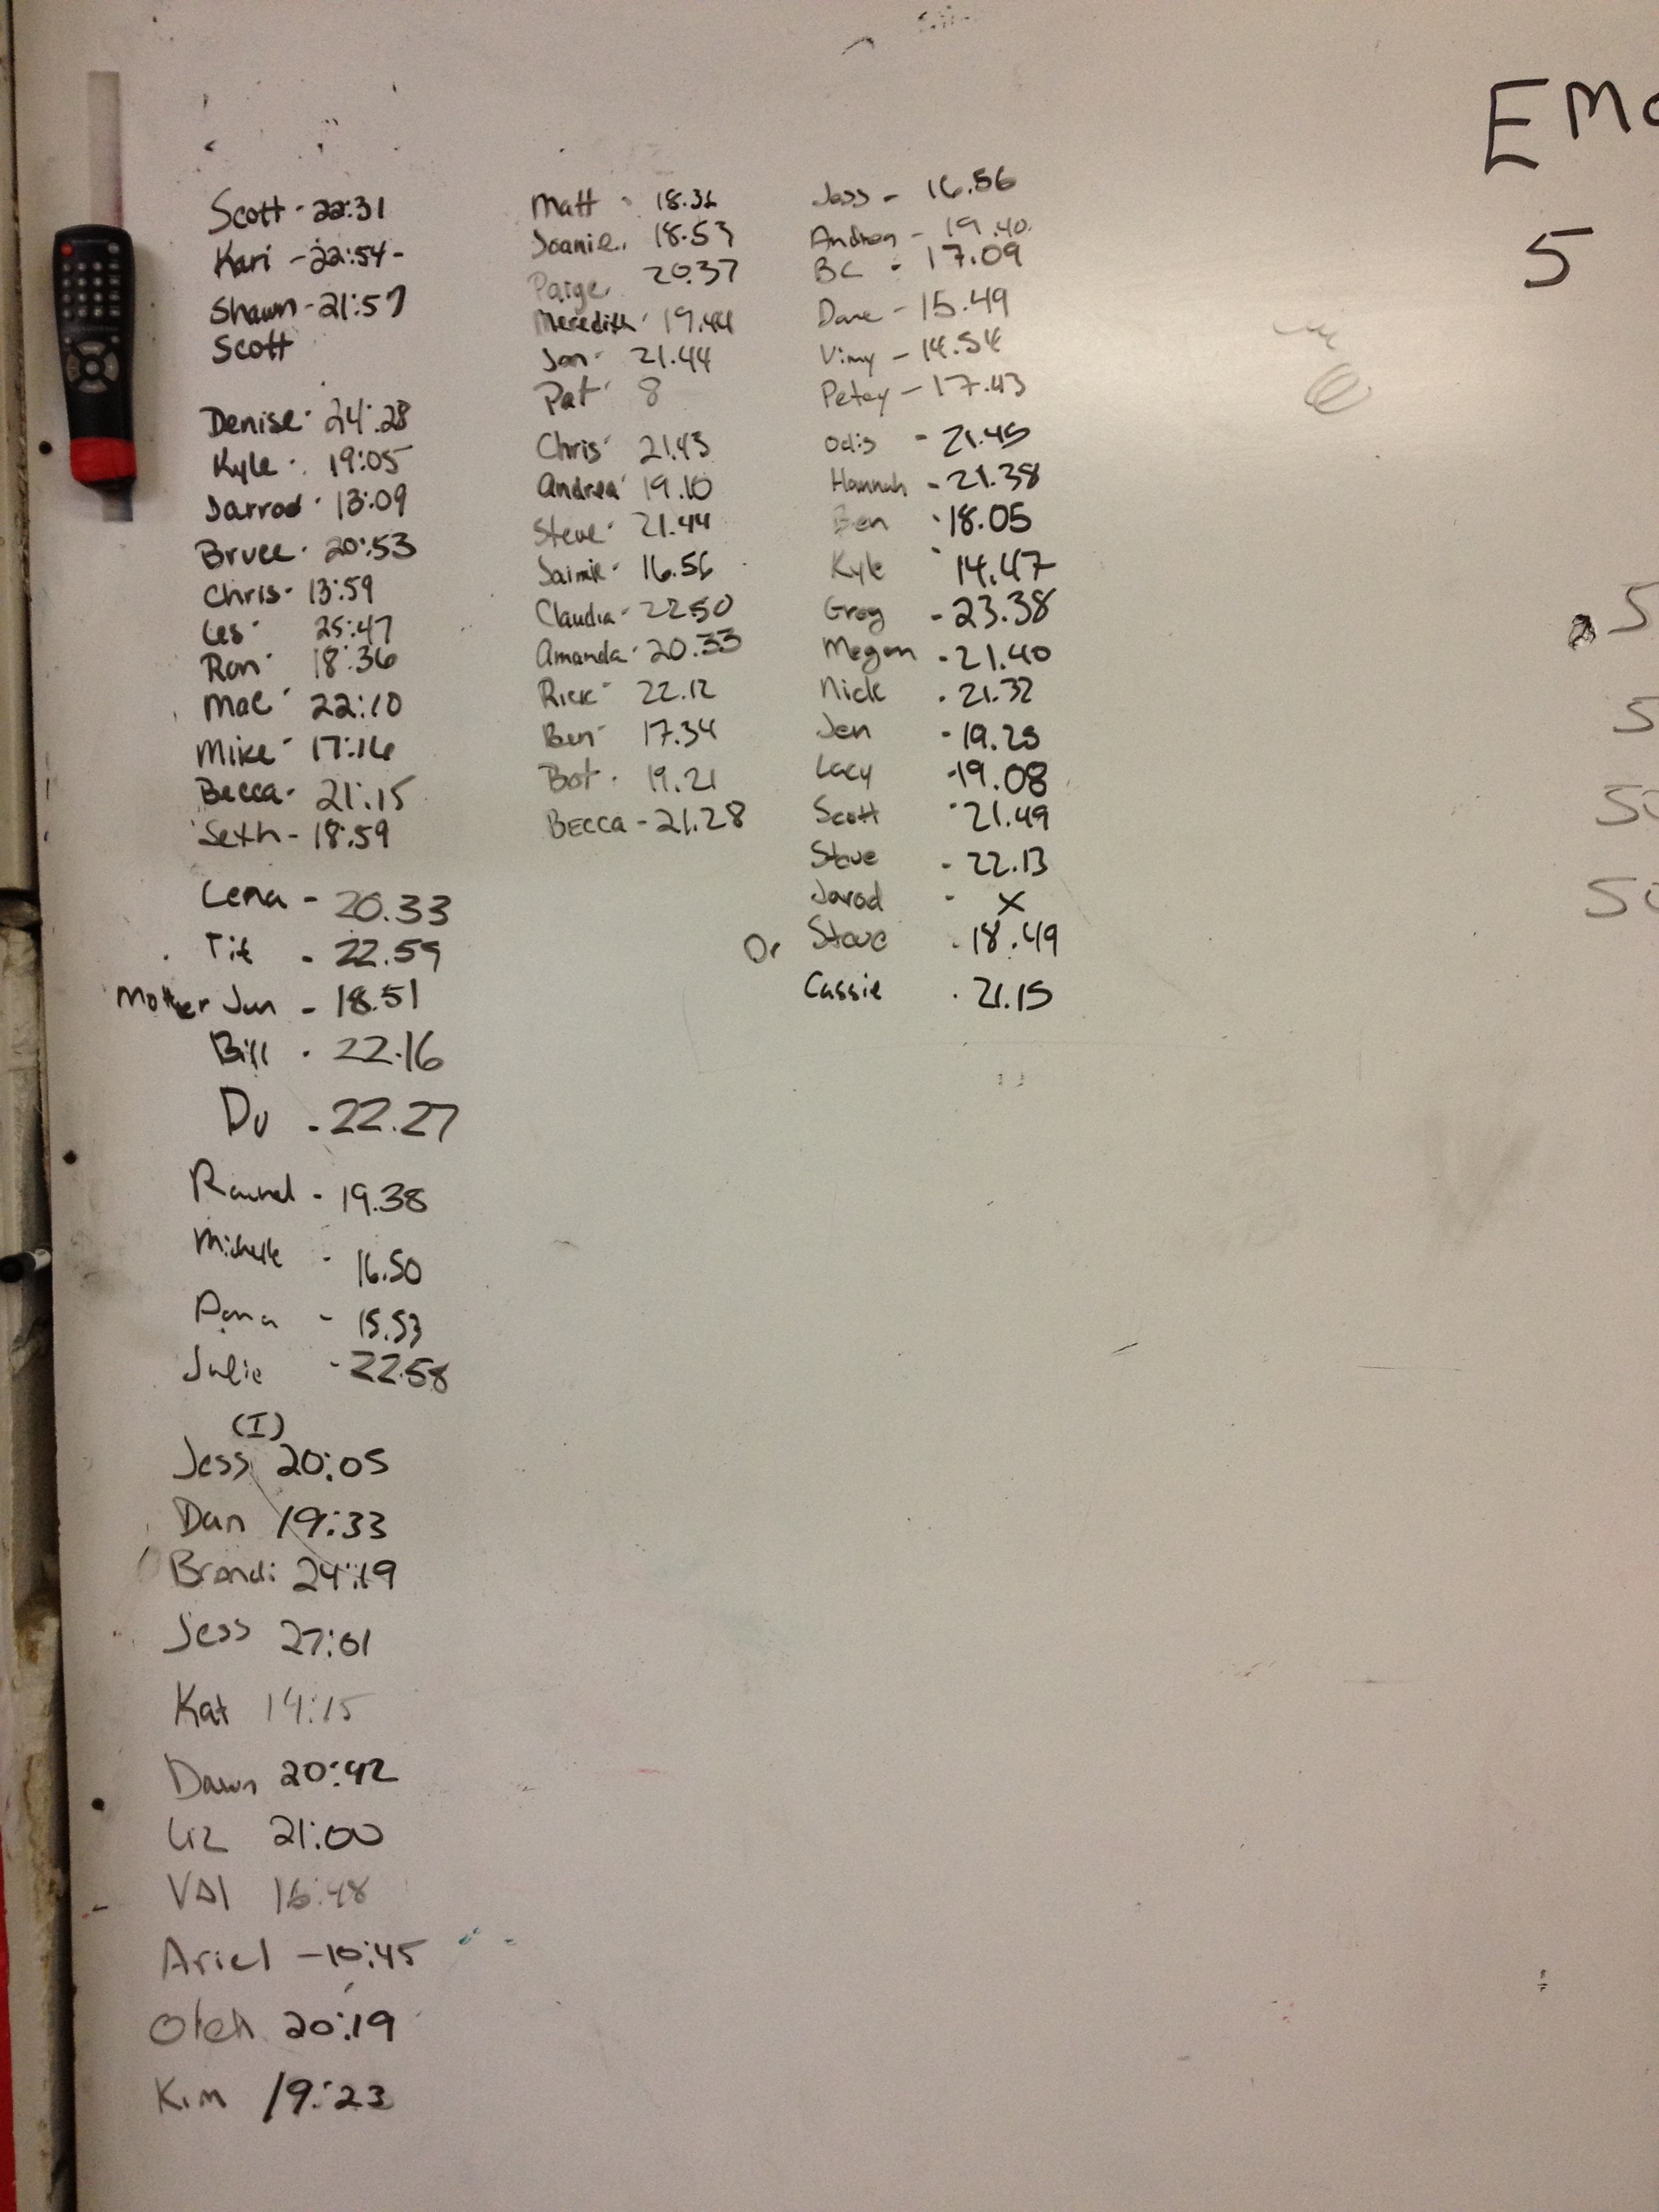 Scott - 22:31
Kari - 22:54 -
Shawn - 21:57
Scott
Denise - 24:28
Kyle - 19:05
Jarrod - 13:09
Bruce - 20:53
Chris - 13:59
Les - 25:47
Ron - 18:36
Mac - 22:10
Mike - 17:16
Becca - 21:15
Seth - 18:59
Lena - 20.33
Tif - 22.59
Mother Jun - 18.51
Bill - 22.16
Du - 22.27
- 19.38
Michelle - 16.50
Dana - 15.53
Julie - 22.58
(I)
Jess 20:05
Dan 19:33
Brandi 24:19
Jess 27:01
Kat 14:15
Dawn 20:42
Liz 21:00
VAl 16:48
Ariel - 10:45
Oleh 20:19
Kim 19:23
Matt - 18.36
Joanie - 18.53
Paige 20.37
Meredith - 19.44
Jon - 21.44
Pat - 8
Chris - 21.43
Andrea - 19.10
Steve - 21.44
Jaimie - 16.56
Claudia - 22.50
Amanda - 20.33
Rick - 22.12
Ben - 17.34
Bot - 19.21
BECCA - 21.28
Jess - 16.56
Andrea - 19.40
BC - 17.09
Dave - 15.49
Vimy - 14.54
Petey - 17.43
Odis - 21.45
Hannah - 21.38
Ben - 18.05
Kyle - 14.47
Greg - 23.38
Megan - 21.40
Nick - 21.32
Jen - 19.25
Lacy - 19.08
Scott - 21.49
Steve - 22.13
Jarod - X
Dr Steve - 18.49
Cassie - 21.15
EMO
5
5
5
50
50